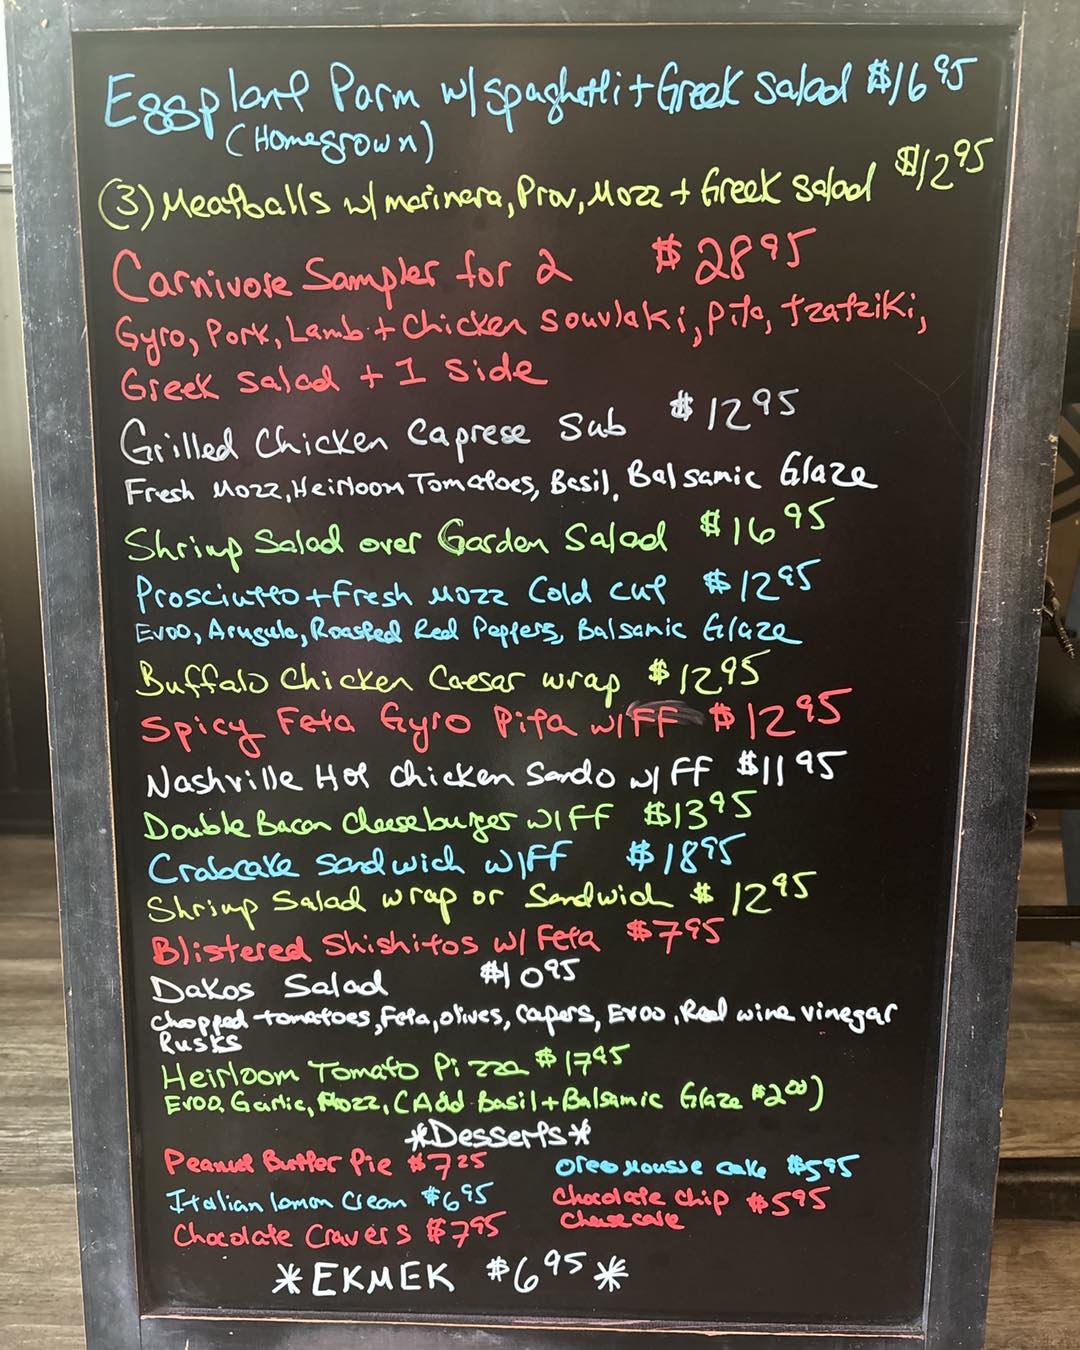 Eggplant Parm w/spaghetti + Greek salad $16.95
(Homegrown)
(3) Meatballs w/ marinera, Prov, Mozz + Greek salad $12.95
Carnivore Sampler for 2 $28.95
Gyro, Pork, Lamb + Chicken souvlaki, pita, tzatziki,
Greek salad + 1 side
Grilled Chicken Caprese Sub $12.95
Fresh Mozz, Heirloom Tomatoes, Basil, Balsamic Glaze
Shrimp Salad over Garden Salad $16.95
Prosciutto + Fresh Mozz Cold cut $12.95
Evoo, Arugula, Roasted Red Peppers, Balsamic Glaze
Buffalo Chicken Caesar wrap $12.95
Spicy Feta Gyro Pita w/FF $12.95
Nashville Hot Chicken Sando w/ FF $11.95
Double Bacon Cheeseburger w/FF $13.95
Crabcake Sandwich w/FF $18.95
Shrimp Salad wrap or Sandwich $12.95
Blistered Shishitos w/ Feta $7.95
Dakos Salad $10.95
Chopped tomatoes, Feta, olives, capers, Evoo, Red wine vinegar
Rusks
Heirloom Tomato Pizza $17.95
Evoo, Garlic, Mozz, (Add Basil + Balsamic Glaze $2.00)
*Desserts*
Peanut Butter Pie $7.25 Oreo Mousse cake $5.95
Italian lemon Cream $6.95 Chocolate Chip $5.95
cheesecake
Chocolate Cravers $7.95
*EKMEK $6.95*